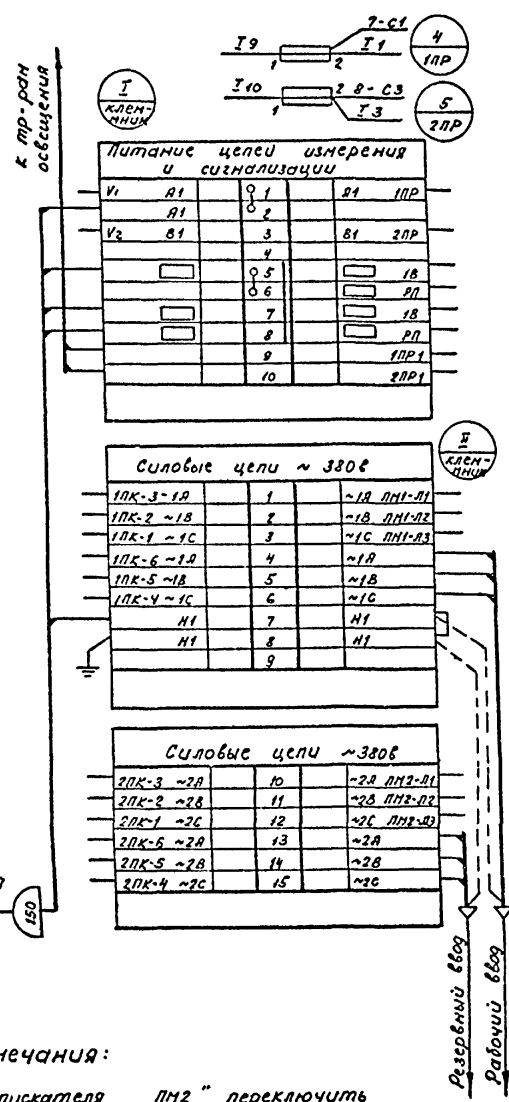 7-С1
I9
I1
1
2
4
1ПР
I10
2 8-С3
1
I3
5
2ПР
к тр-рам
освещения
I
клем-
мник
Питание цепей измерения
и сигнализации
V1 А1 1 А1 1ПР
А1 2
V2 В1 3 В1 2ПР
4
5 1В
6 РП
7 1В
8 РП
9 1ПР1
10 2ПР1
II
клем-
мник
Силовые цепи ~ 380в
1ПК-3 ~1А 1 ~1А ПМ1-Л1
1ПК-2 ~1В 2 ~1В ПМ1-Л2
1ПК-1 ~1С 3 ~1С ПМ1-Л3
1ПК-6 ~1А 4 ~1А
1ПК-5 ~1В 5 ~1В
1ПК-4 ~1С 6 ~1С
Н1 7 Н1
Н1 8 Н1
9
Силовые цепи ~380в
2ПК-3 ~2А 10 ~2А ПМ2-Л1
2ПК-2 ~2В 11 ~2В ПМ2-Л2
2ПК-1 ~2С 12 ~2С ПМ2-Л3
2ПК-6 ~2А 13 ~2А
2ПК-5 ~2В 14 ~2В
2ПК-4 ~2С 15 ~2С
150
Резервный ввод
Рабочий ввод
мечания:
пускателя ПМ2" переключить